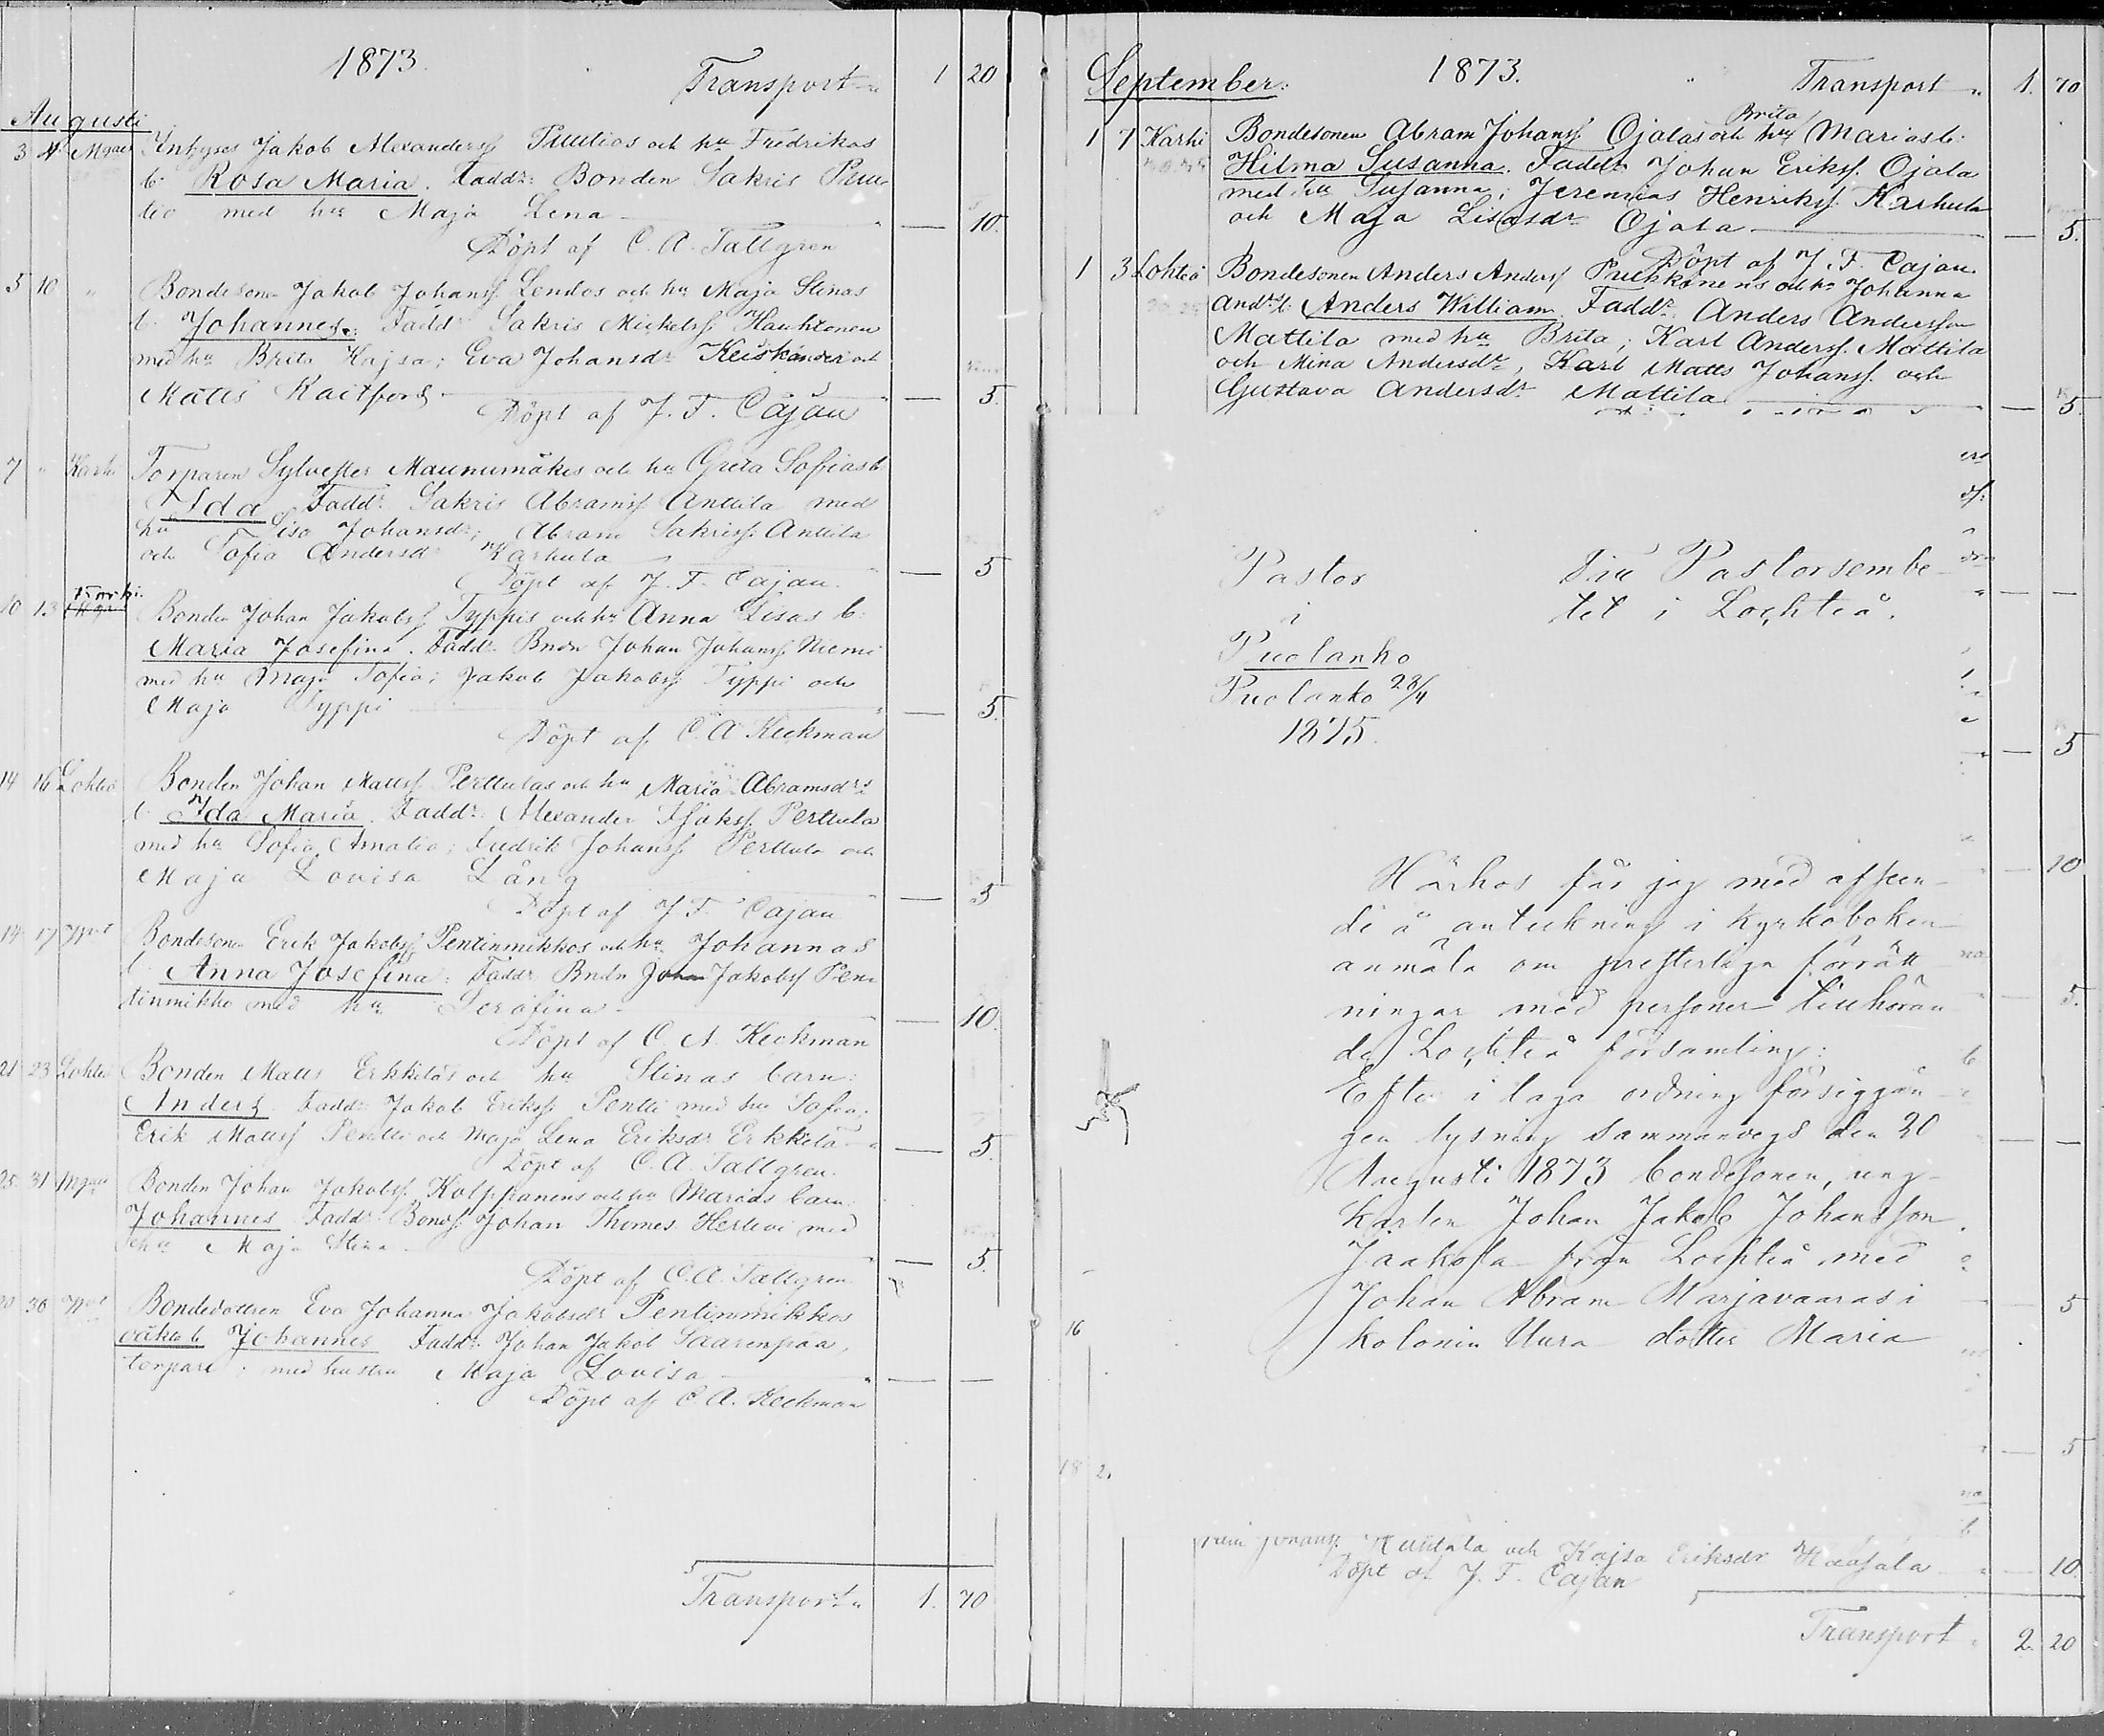 1873.
Transport 1 20
Augusti
3 4 Mgain Inhyses Jakob Alexanderss Puutios och hu Fredrikas
b. Rosa Maria. Faddr: Bonden Sakris Puu-
tio med hu Maja Lena — 10.
Döpt af C. A. Tallgren
5 10 " Bondesonen Jakob Johanss. Lendos och hu Maja Stinas
b. Johannes. Faddr Sakris Mickelss Hauhtonen
med hu Brita Kajsa; Eva Johansdr Keiskander och
Matts Kaitfors — 5.
Döpt af J. F. Cajan
7 " Karhi Torparen Sylvester Maunumäkis och hu Greta Sofias b
Ida Faddr. Sakris Abramss Anttila med
hu Lisa Johansdr; Abram Sakriss. Anttila
och Sofia Andersdr Karhula — 5
Döpt af J. F. Cajan.
10 13 Karhi Bonden Johan Jakobss Typpis och hu Anna Lisas b.
Maria Josefina. Faddr. Bndn Johan Johanss. Niemi
med hu Maja Sofia; Jakob Jakobss Typpi och
Maja Typpi — 5.
Döpt af C. A. Keckman
14 16 Lohteå Bonden Johan Mattss Perttulas och hu Maria Abramsdrs
b. Ida Maria. Faddr: Alexander Isakss. Perttula
med hu Sofia Amalia; Fredrik Johanss Perttula och
Maja Lovisa Lång — 5
Döpt af J. F. Cajan
14 17 Bondesonen Erik Jakobss Pentinmikkos och hu Johannas
b. Anna Josefina. Faddr. Bndn Johan Jakobss Pen-
tinmikko med hu Serafina — 10.
Döpt af C. A. Keckman
21 23 Lohteå Bonden Matts Erkkiläs och hu Stinas barn:
Anders Faddr Jakob Erikss Pentti med hu Sofia;
Erik Mattss Pentti och Maja Lena Eriksdr Erkkilä — 5.
Döpt af C. A. Tallgren.
25 31 Mgain Bonden Johan Jakobss. Kolppanens och hu Marias barn:
Johannes Faddr. Bonds. Johan Thomes. Herlevi med
hu Maja Stina — 5.
Döpt af C. A. Tallgren
30 Bondedottren Eva Johanna Jakobsdr Pentinmikkos
oäkta b. Johannes Faddr. Johan Jakob Saarenpää,
torpare; med hustru Maja Lovisa — —
Döpt af C. A. Keckman
Transport 1. 70
September: 1873. Transport 1. 70
Brita
1 7 Karhi Bondesonen Abram Johanss Ojalas och hu Marias b.
Hilma Susanna. Faddr Johan Erikss. Ojala
med hu Susanna; Jeremias Henrikss. Karhula
och Maja Lisasdr Ojala — 5.
Döpt af J. F. Cajan.
1 3 Lohteå Bondesonen Anders Anderss Puckkonens och hu Johanna
Andr. b. Anders William. Faddr. Anders Andersson
Mattila med hu Brita; Karl Anderss. Mattila
och Mina Andersdr, Karl Matts Johanss. och
Gustava Andersdr Mattila — 5.
Pastor
i
Puolanko
Puolanko 28/4
1875.
Till Pastorsembe-
tet i Lochteå.
— —
— 5
Härhos får jag med afseen- — 10
de å anteckning i kyrkoboken
anmäla om presterliga förrätt
ningar med personer tillhöran — 5.
de Lochteå församling:
Efter i laga ordning försiggån
gen lysning sammanvegs den 20 — —
Augusti 1873 bondesonen, ung-
karlen Johan Jakob Johansson
Jaakola från Lochteå med
Johan Abram Marjavaaras i — 5
16
kolonin Uura dotter Maria
— 5
18 2.
Johanss. Huhtala och Kajsa Eriksdr Haasala — 10.
Döpt af J. F. Cajan
Transport 2. 20